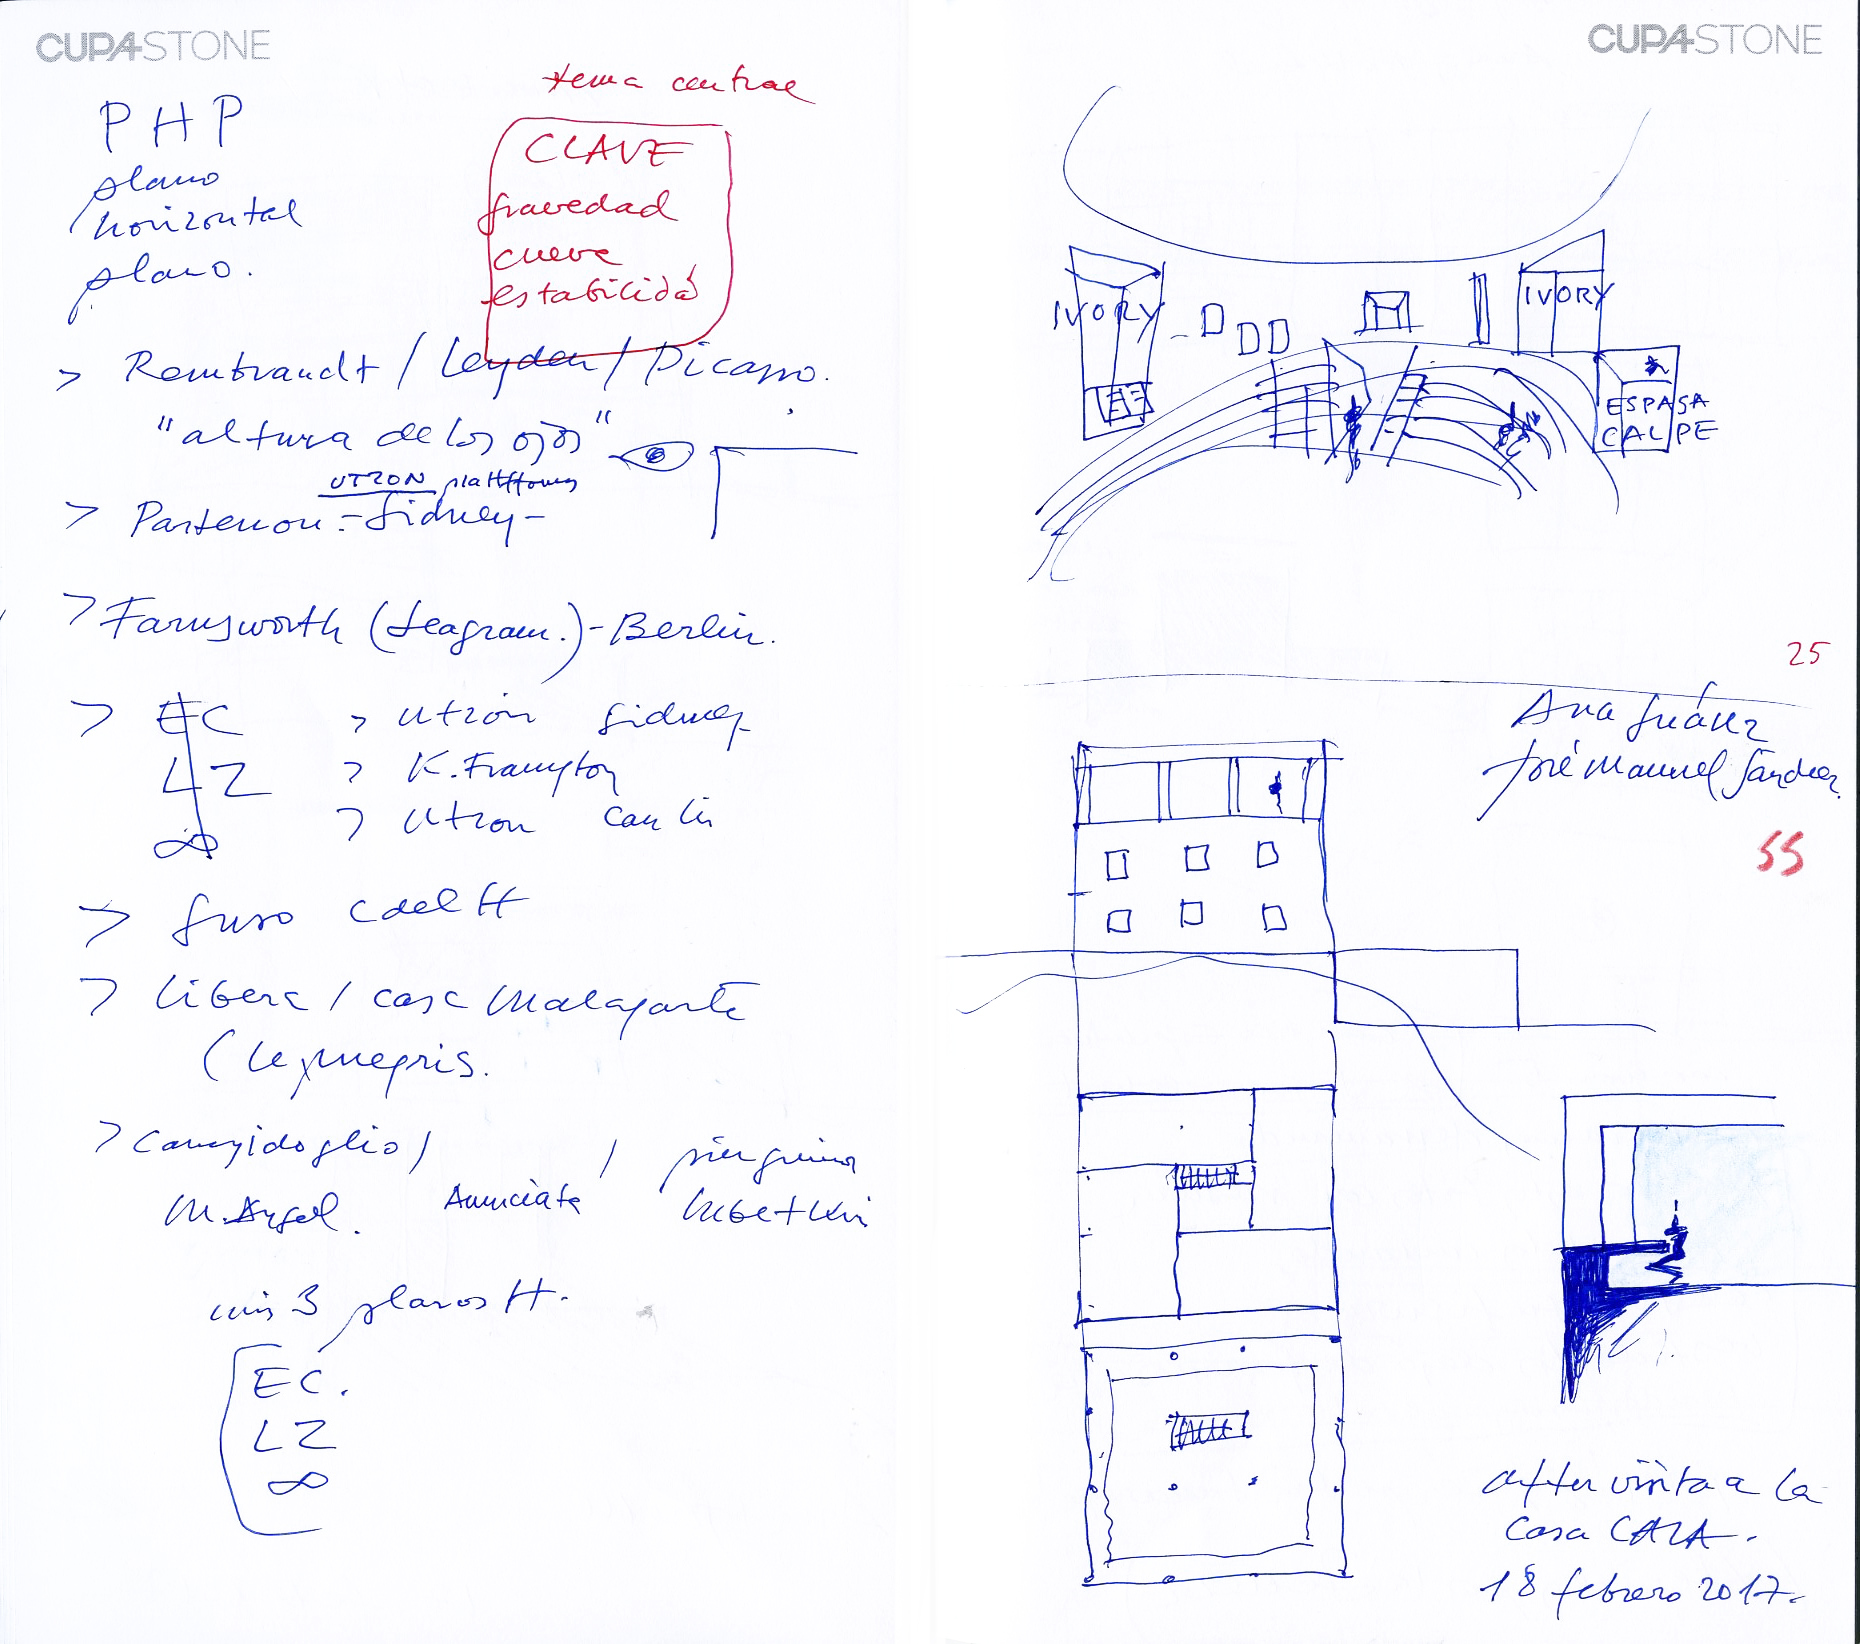 CUPASTONE
PHP
plano
horizontal
plano.
tema central
CLAVE
gravedad
cueva
estabilidá
> Rembrandt / Leyden / Picasso.
"altura de los ojos"
UTZON plattforms
> Partenon - Sidney -
> Farnsworth (Seagram.) - Berlin.
> EC > Utzon Sidney
LZ > K. Frampton
∞ > Utzon Can Lis
> Suso C del H
> Libera / casa Malaparte
(Le mepris.
> Campidoglio /
M. Angel. Anunciata / piergiacomo
mis 3 planos H.
EC.
LZ
∞
CUPASTONE
IVORY
IVORY
ESPASA
CALPE
25
Ana Suárez
José Manuel Sánchez
55
after visita a la
Casa CALA.
18 febrero 2017.